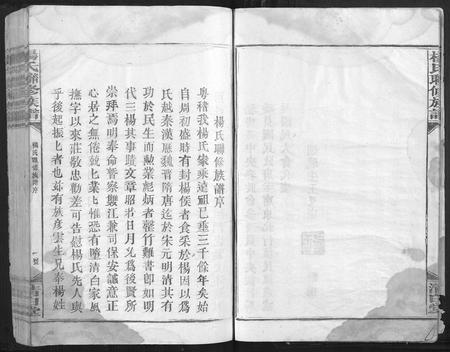 楊氏聯修族譜
清白堂
楊氏聯修族譜序
粵稽我楊氏家乘遠溯已垂三千餘年矣始
自周初盛時有封楊侯者食采於楊因以為
氏越秦漢歷魏晉隋唐迄於宋元明清其有
功於民生而勳業彪炳者罄竹難書即如明
代三楊其事蹟文章昭若日月允為後賢所
崇拜壽明奉命督察雙江兼司保安謐意正
心居之無倦兢兢業業惟恐有墮清白家風
撫字以來莊敬忠勤差可告慰楊氏先人與
乎後起振振者也茲有族彥雲生兄奉楊姓
楊氏聯修族譜
楊氏聯修族譜序
一